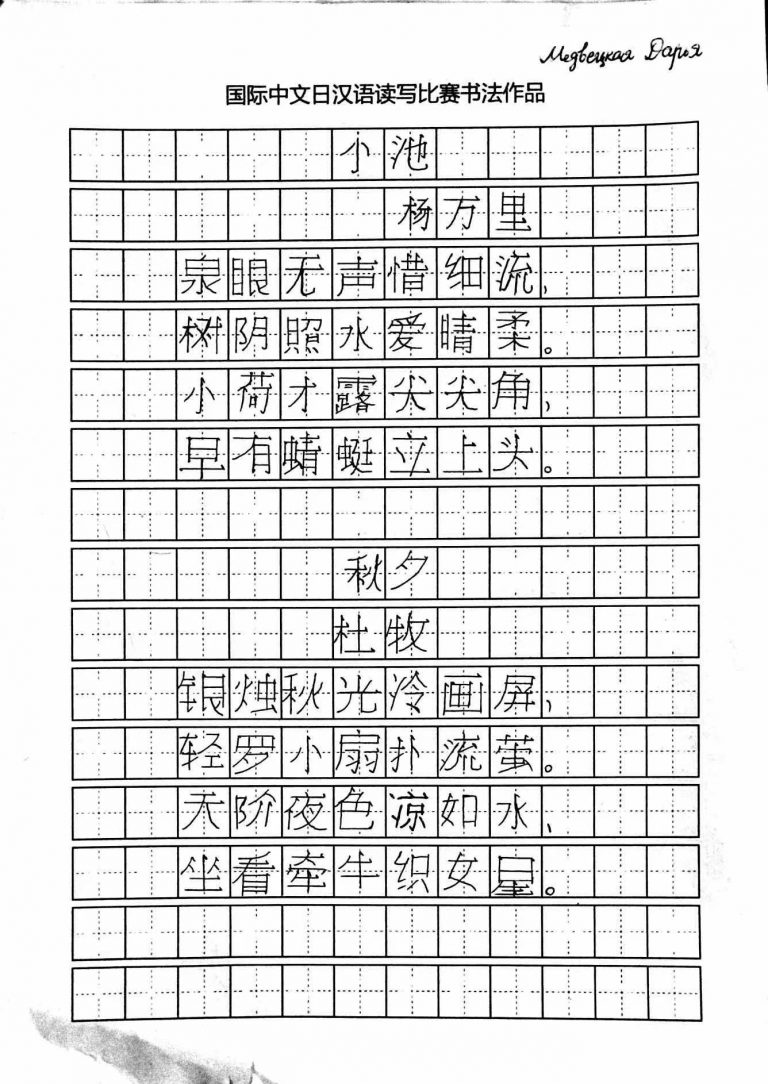 Медвецкая Дарья
国际中文日汉语读写比赛书法作品
小池
杨万里
泉眼无声惜细流,
树阴照水爱晴柔。
小荷才露尖尖角,
早有蜻蜓立上头。
秋夕
杜牧
银烛秋光冷画屏,
轻罗小扇扑流萤。
天阶夜色凉如水、
坐看牵牛织女星。